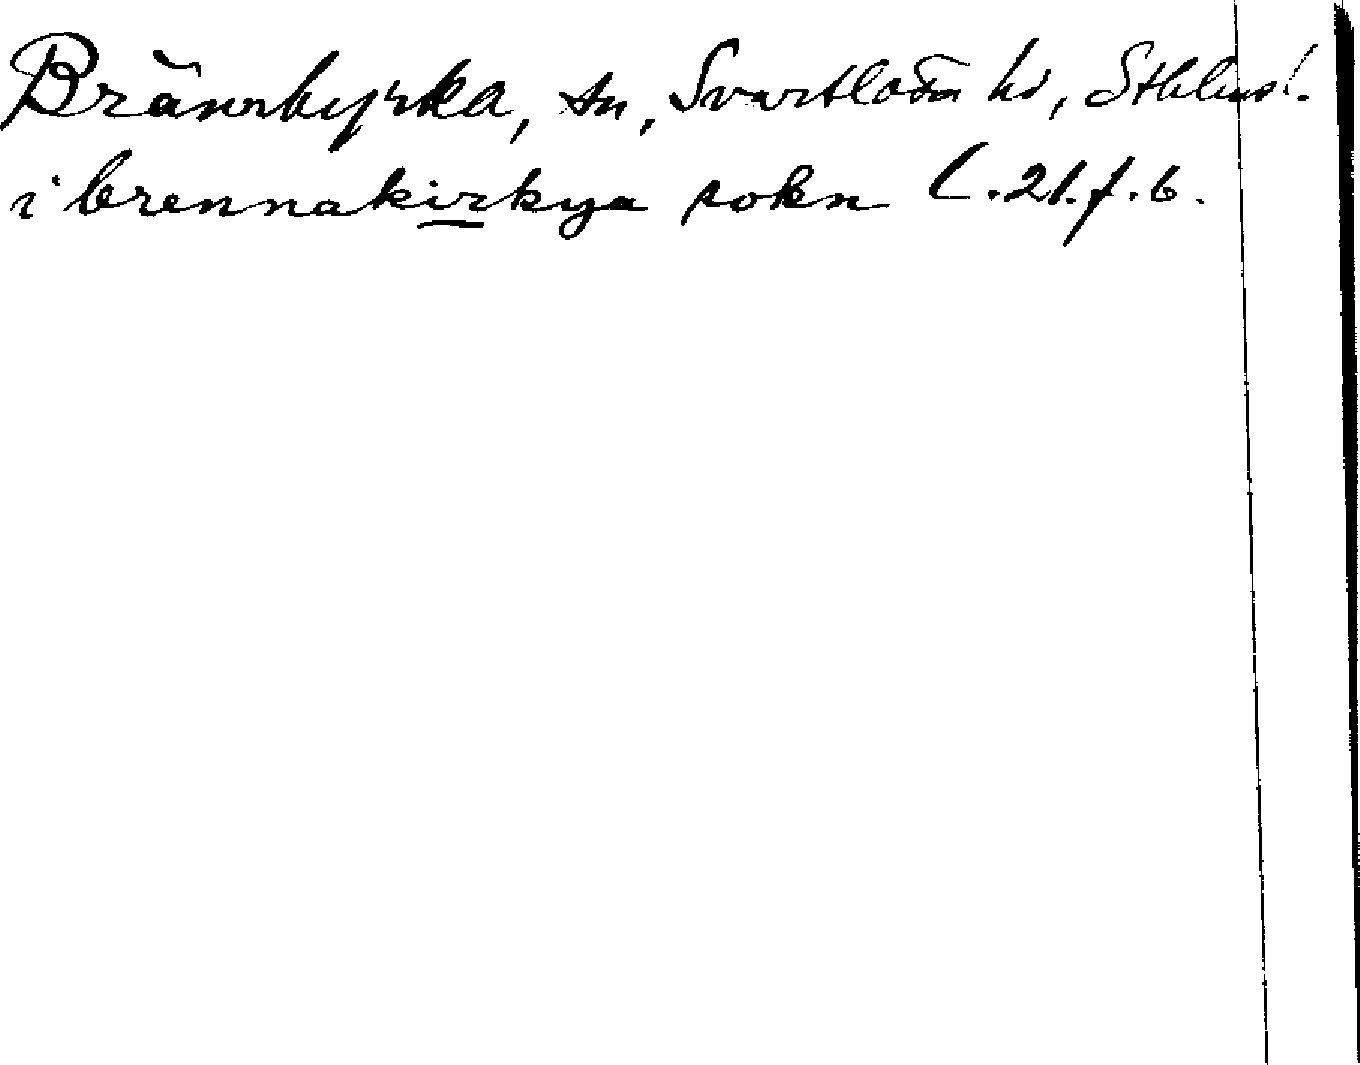 Brännkyrka, sn, Svartlösa hd, Sthlms l.
i brennakirkya sokn C.21.f.6.